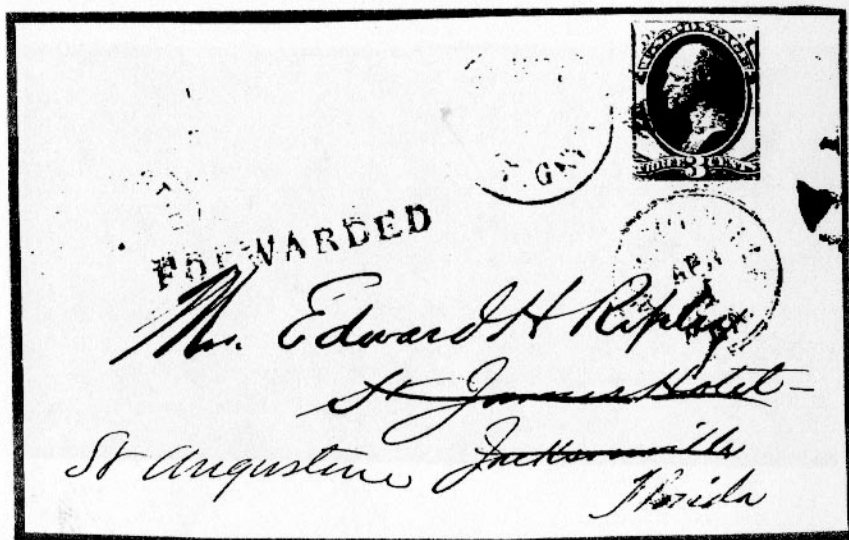 U.S. POSTAGE
THREE 3 CENTS
FORWARDED
APR
Mr. Edward H Ripley
St James Hotel
St Augustine Jacksonville
Florida